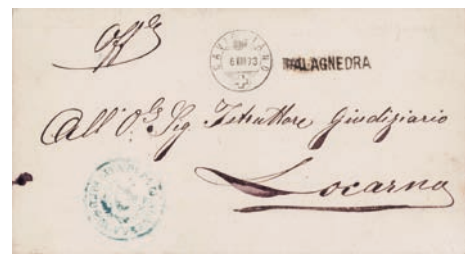 Off.le
CAVIGLIANO
PALAGNEDRA
All' O.le Sig. Istruttore Giudiziario
Locarno